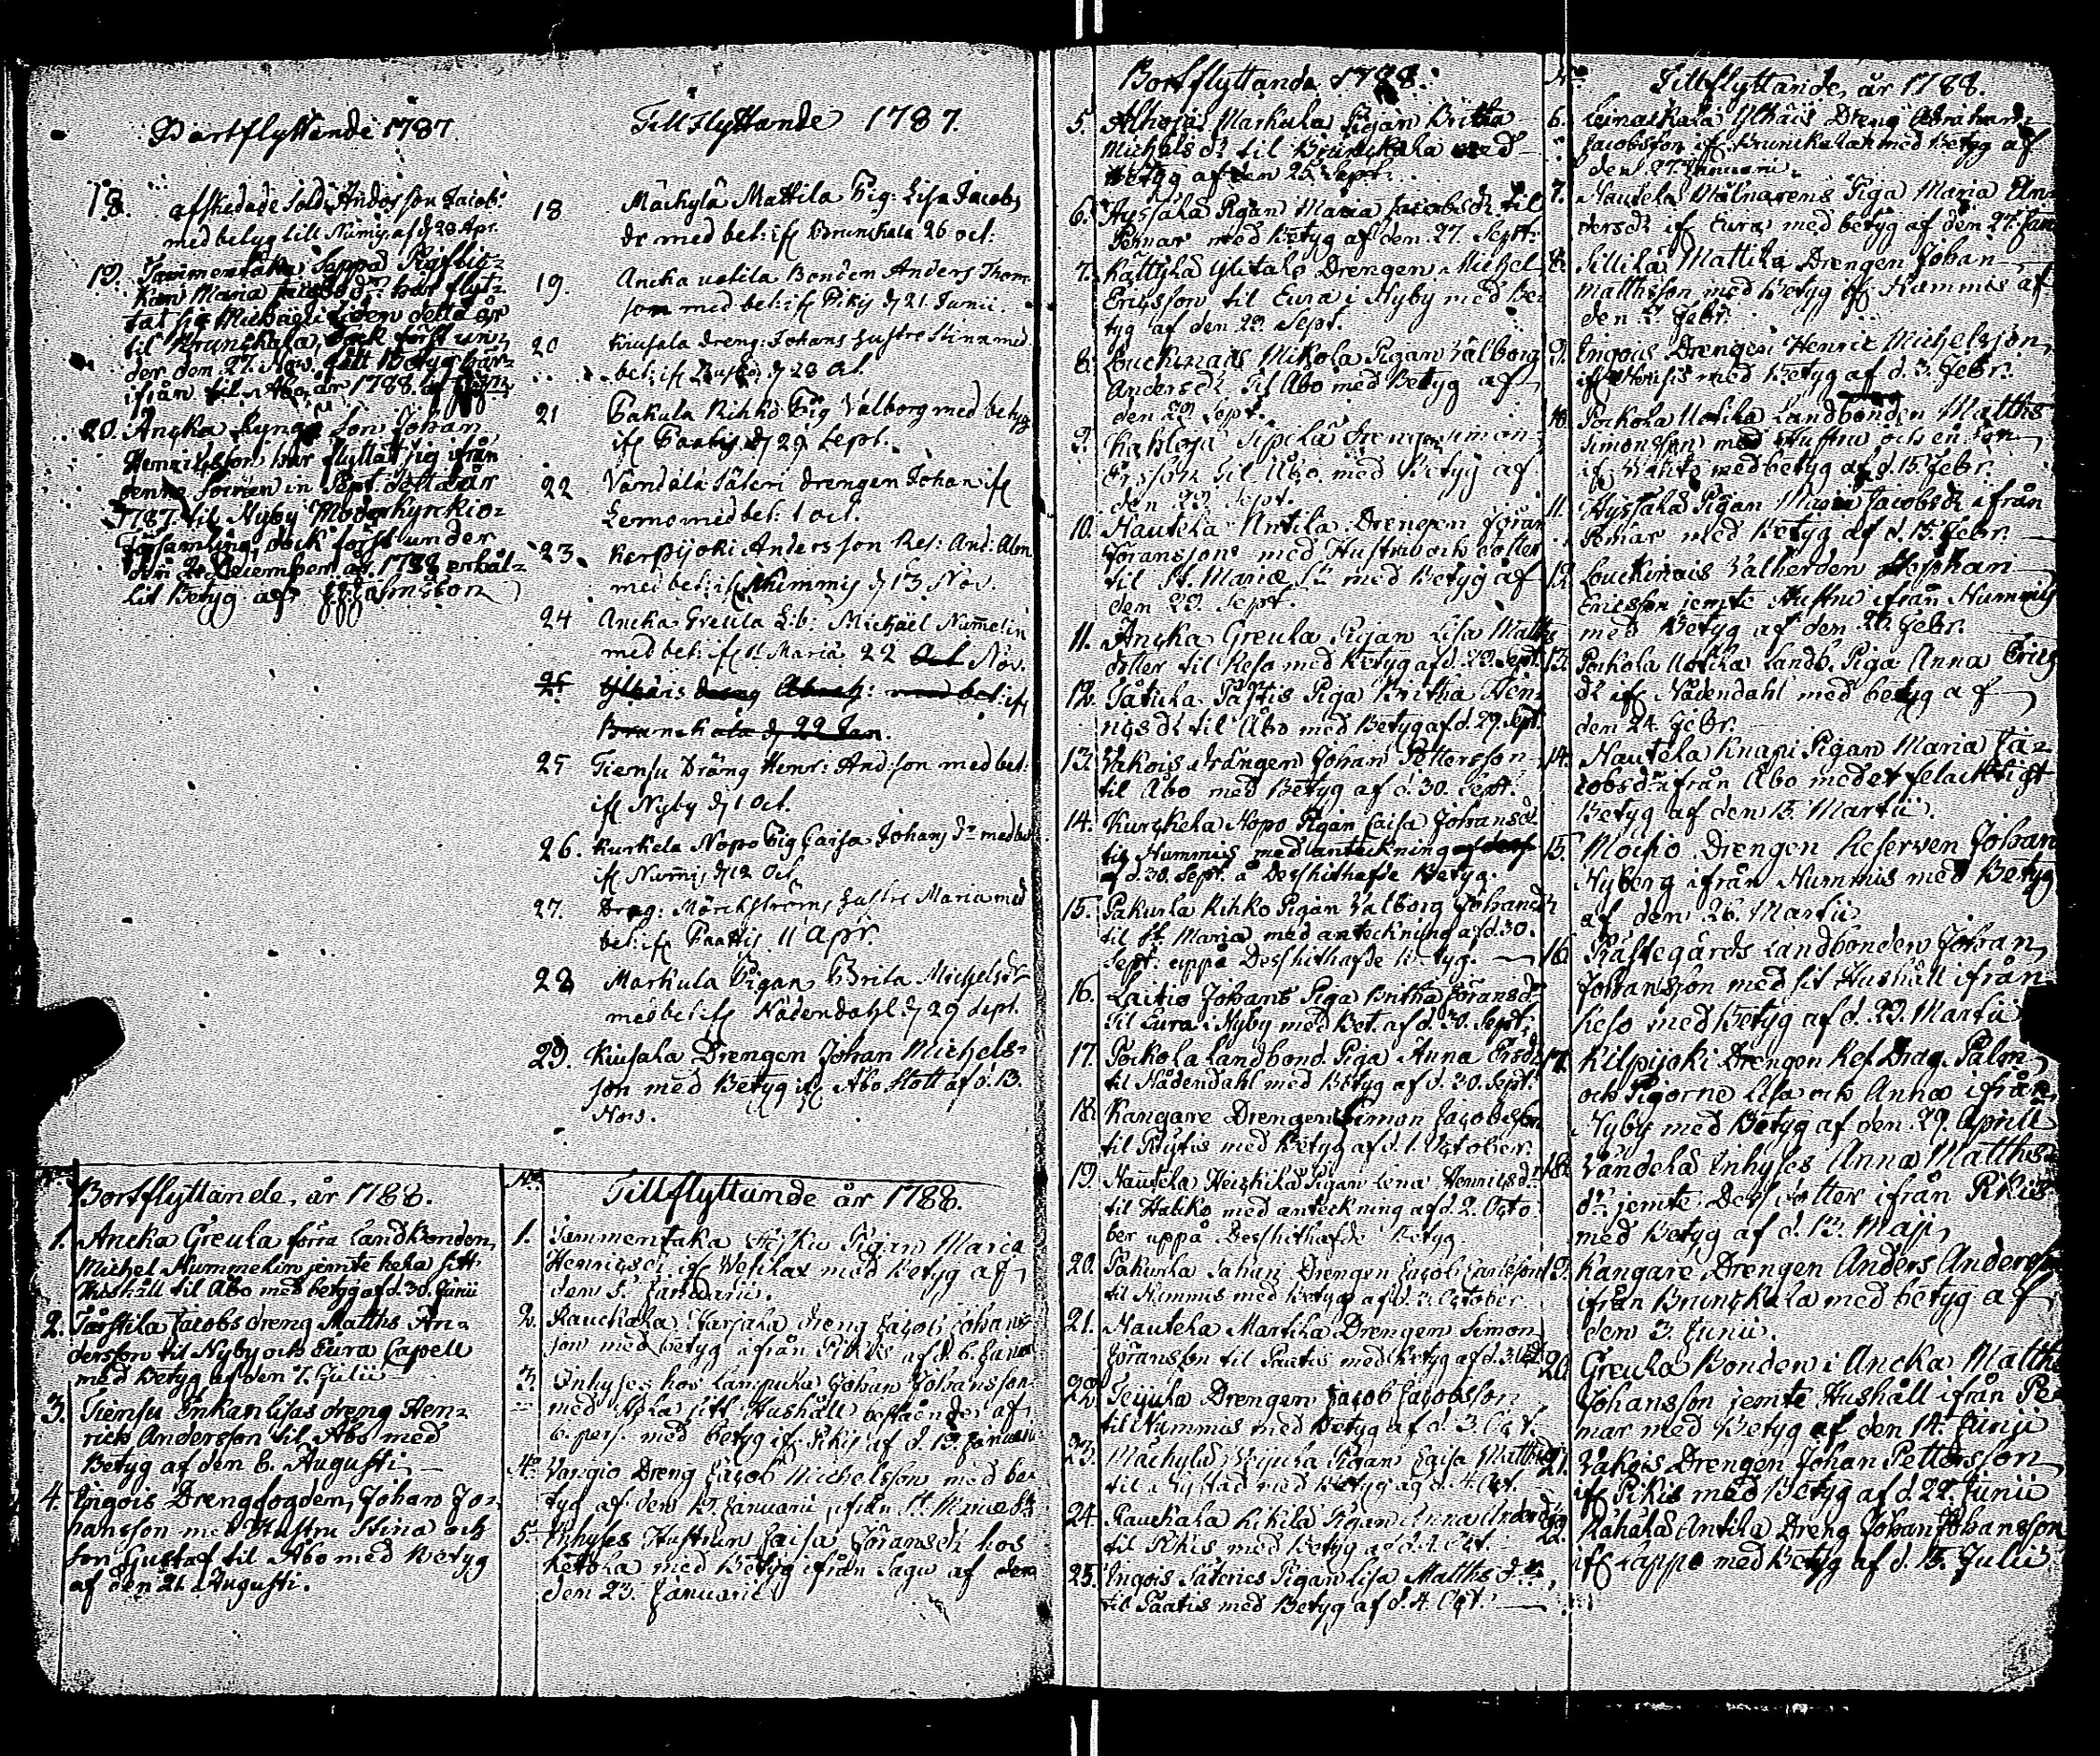 Bortflyttande 1787
18. afskedade Sold: Anders son Jacob:
med betyg till Numis af d 28 Apr.
19. Tammentaka Seppä Pig
kan Maria Jacobsdr: har flyt-
tat sig Michaeli tiden detta år
til Brunskala, dock först un-
der den 27. Nov. fått Betyg här-
ifrån til Åbo, år 1788.
20. Ancka Ryngö Son Johan
Henricsson har flyttat sig ifrån
denne Socknen in Sept. detta år
1787. til Nyby Moderkyrkio-
församling, dock först under
den 2. December år 1788 erhål-
lit Betyg af
Tillflyttande 1787.
18 Mäckylä Mattila Pig: Lisa Jacobs
dr med bet: ifr Brunskala 26 oct:
19. Ancka uotila Bonden Anders Thom
son med bet: ifr Pikis d 21. Junii.
20 Kiusala dreng: Johans hustru Stina med
bet: ifr Rusko d 28 oct.
21 Pakula Rihko Pig Valborg med betyg
ifr Paatis d 29 Sept.
22 Vändälä Säteri drengen Johan ifr
Lemo med bet: 1 oct.
23. Kerpijoki Anders son Ref: And: Alm
med bet: ifr Nummis d 13 Nov.
24 Ancka Greula Lib: Michäel Numelin
med bet: ifr St Mariä 22 Oct Nov.
25 Ylhäis dreng Abrah: med bet: ifr
Brunskala d 22 Jan.
25 Tiensu Dräng Henr: And:son med bet:
ifr Nyby d 1 Oct.
26. Kurkela Nopo Pig Caisa Johans dr med bet
ifr Numis d 12 Oct
27. Drag: Mörckströms hustru Maria med
bet: ifr Paattis 11 apr.
28 Markula Pigan Brita Michelsdr
med bet ifr Nådendahl d 29 sept.
29. Kiusala Drengen Johan Michels-
son med Betyg ifr Åbo Slott af d. 13.
Nov.
Bortflyttande, år 1788.
1. Ancka Greula förra Landbonden
Michel Nummelin jemte hela sitt
Hushåll til Åbo med betyg af d. 30. Junii
2. Tårstila Jacobs dreng Matths An-
dersson til Nyby och Eura Capell
med Betyg af den 7. Julii
3. Tiensu Enkan Lisas dreng Hen-
rich Andersson til Åbo med
Betyg af den 6. Augusti
4. Ingois Drengfogden, Johan Jo-
hansson med Hustru Stina och
Son Gustaf til Åbo med Betyg
af den 21. Augusti.
No Tillflyttande år 1788.
1. Tammentaka Pigan Maria
Henricsdr ifr Vesilax med Betyg af
den 5. Januarii.
2. Rauckala Tarjala dreng Jacob Johans-
son med betyg ifrån Pikis af d. 6. Januarii
3. Inhyses hos Lampula Johan Johansson
med hela sitt Hushåll bestående af
6. pers. med betyg ifr Pikis af d. 13. Januarii
4. Vargio Dreng Jacob Michelsson med be-
tyg af den 17. Januarii ifrån St. Mariæ Sn
5. Inhyses Hustrun Caisa Jöransdr hos
Ketola med Betyg ifrån Sagu af den
den 23. Januarii
Bortflyttande 1788.
5. Alhojas Markula Pigan Britha
Michelsdr til Brunckala med
Betyg af den 25. Sept.
6. Hyssälä Pigan Maria Jacobsdr til
Pemar med Betyg af den 27. Sept:
7. Kättylä Ylitalo Drengen Michel
Ericsson til Eura i Nyby med Be-
tyg af den 29. Sept.
8. Louckinais Mikola Pigan Valborg
Andersdr til Åbo med Betyg af
den 29. Sept.
9. Sipilä Drengen Simon
Ersson til Åbo med Betyg af
den 29. Sept.
10. Nautela Antila Drengen Jöran
Jöransson med Hustru och dotter
til St. Mariæ Sn med Betyg af
den 29. Sept.
11. Ancka Greula Pigan Lisa Matths
dotter til Reso med Betyg af d. 29. Sept.
12. Tåtula Påftis Piga Britha Hen-
ricsdr til Åbo med Betyg af d. 29. Sept.
13. Vakois drängen Johan Pettersson
til Åbo med Betyg af d. 30. Sept.
14. Kurckela Nopo Pigan Caisa Johansdr
til Nummis med anteckning
af d. 30. Sept. å Dess hithafde Betyg.
15. Pakurla Rihko Pigan Valborg Johansdr
til St. Mariæ med anteckning af d. 30.
Sept. uppå Dess hithafde Betyg.
16. Laitio Johans Piga Britha Jöransdr
til Eura i Nyby med Bet. af d. 30. Sept.
17. Pockola Landbond. Piga Anna Ersdr
til Nådendahl med Betyg af d. 30. Sept.
18. Kangare Drengen Simon Jacobsson
til Pöytis med Betyg af d. 1. October.
19. Nautela Heickilä Pigan Lena Henricsdr
til Halicko med anteckning af d. 2. Octo
ber uppå Dess hithafde Betyg.
20. Pakurla Sahuri Drengen Jacob Carlsson
til Nummis med Betyg af d. 3. October
21. Nautela Martila Drengen Simon
Jöransson til Paatis med Betyg af d. 3. Oct.
22. Teijula Drengen Jacob Jacobsson
til Nummis med Betyg af d. 3. Oct.
23. Mäckylä Pigan Caisa Matthsdr
til Nystad med Betyg af d. 4. Oct.
24. Rauckala Kikilä Pigan Anna Andersdr
til Pikis med Betyg af d. 4. Oct.
25. Ingois Säteries Pigan Lisa Matths dr
til Paatis med Betyg af d. 4. Oct.
No Tillflyttande, år 1788.
6. Leinackala Ylhäis Dreng Abraham
Jacobsson ifr Brunckala med Betyg af
den 27. Januarii.
7. Nautela Mölnarens Piga Maria An-
dersdr ifr Eura med betyg af den 27. Jan
8. Sillilä Mattila Drengen Johan
Matthsson med Betyg ifr Nummis af
den 3. Febr.
9. Ingois Drengen Henric Michelsson
ifr Nousis med Betyg af d. 3. Febr.
10. Pockola Uotila Landbonden Matths
Simonsson med Hustru och en son
ifr Vahto med betyg af d. 15. Febr.
11. Hyssälä Pigan Maria Jacobsdr ifrån
Pemar med Betyg af d. 15. Febr.
12. Louckinais Valherden Stephan
Ericsson jemte Hustru ifrån Nummis
med Betyg af den 20. Febr.
13. Pockola Uotila Landb. Piga Anna Erics
dr ifr Nådendahl med betyg af
den 24. Febr.
14. Nautela Knapi Pigan Maria Ja-
cobsdr ifrån Åbo med et felacktigt
Betyg af den 13. Martii.
15. Moisio Drengen Reserven Johan
Nyberg ifrån Nummis med Betyg
af den 26. Martii
16. Prästegårds Landbonden Johan
Johansson med sit Hushåll ifrån
Reso med Betyg af d. 29. Martii
17. Kilpijoki Drengen Ref. Drag. Palm
och Pigorne Lisa och Anna ifrån
Nyby med Betyg af den 29. Aprill
18. Vändelä Inhyses Anna Matths-
dr jemte Dess dotter ifrån Pikis
med Betyg af d. 13. Maji
19. Kangare Drengen Anders Andersson
ifrån Brunckala med betyg af
den 3. Junii.
20. Greula Bonden i Ancka Matths
Johansson jemte Hushåll ifrån Pe-
mar med Betyg af den 14. Junii
21. Vakois Drengen Johan Pettersson
ifr Pikis med Betyg af d. 22. Junii
22. Rahala Antila Dreng Johan Johansson
ifr Lappo med Betyg af d. 15. Julii